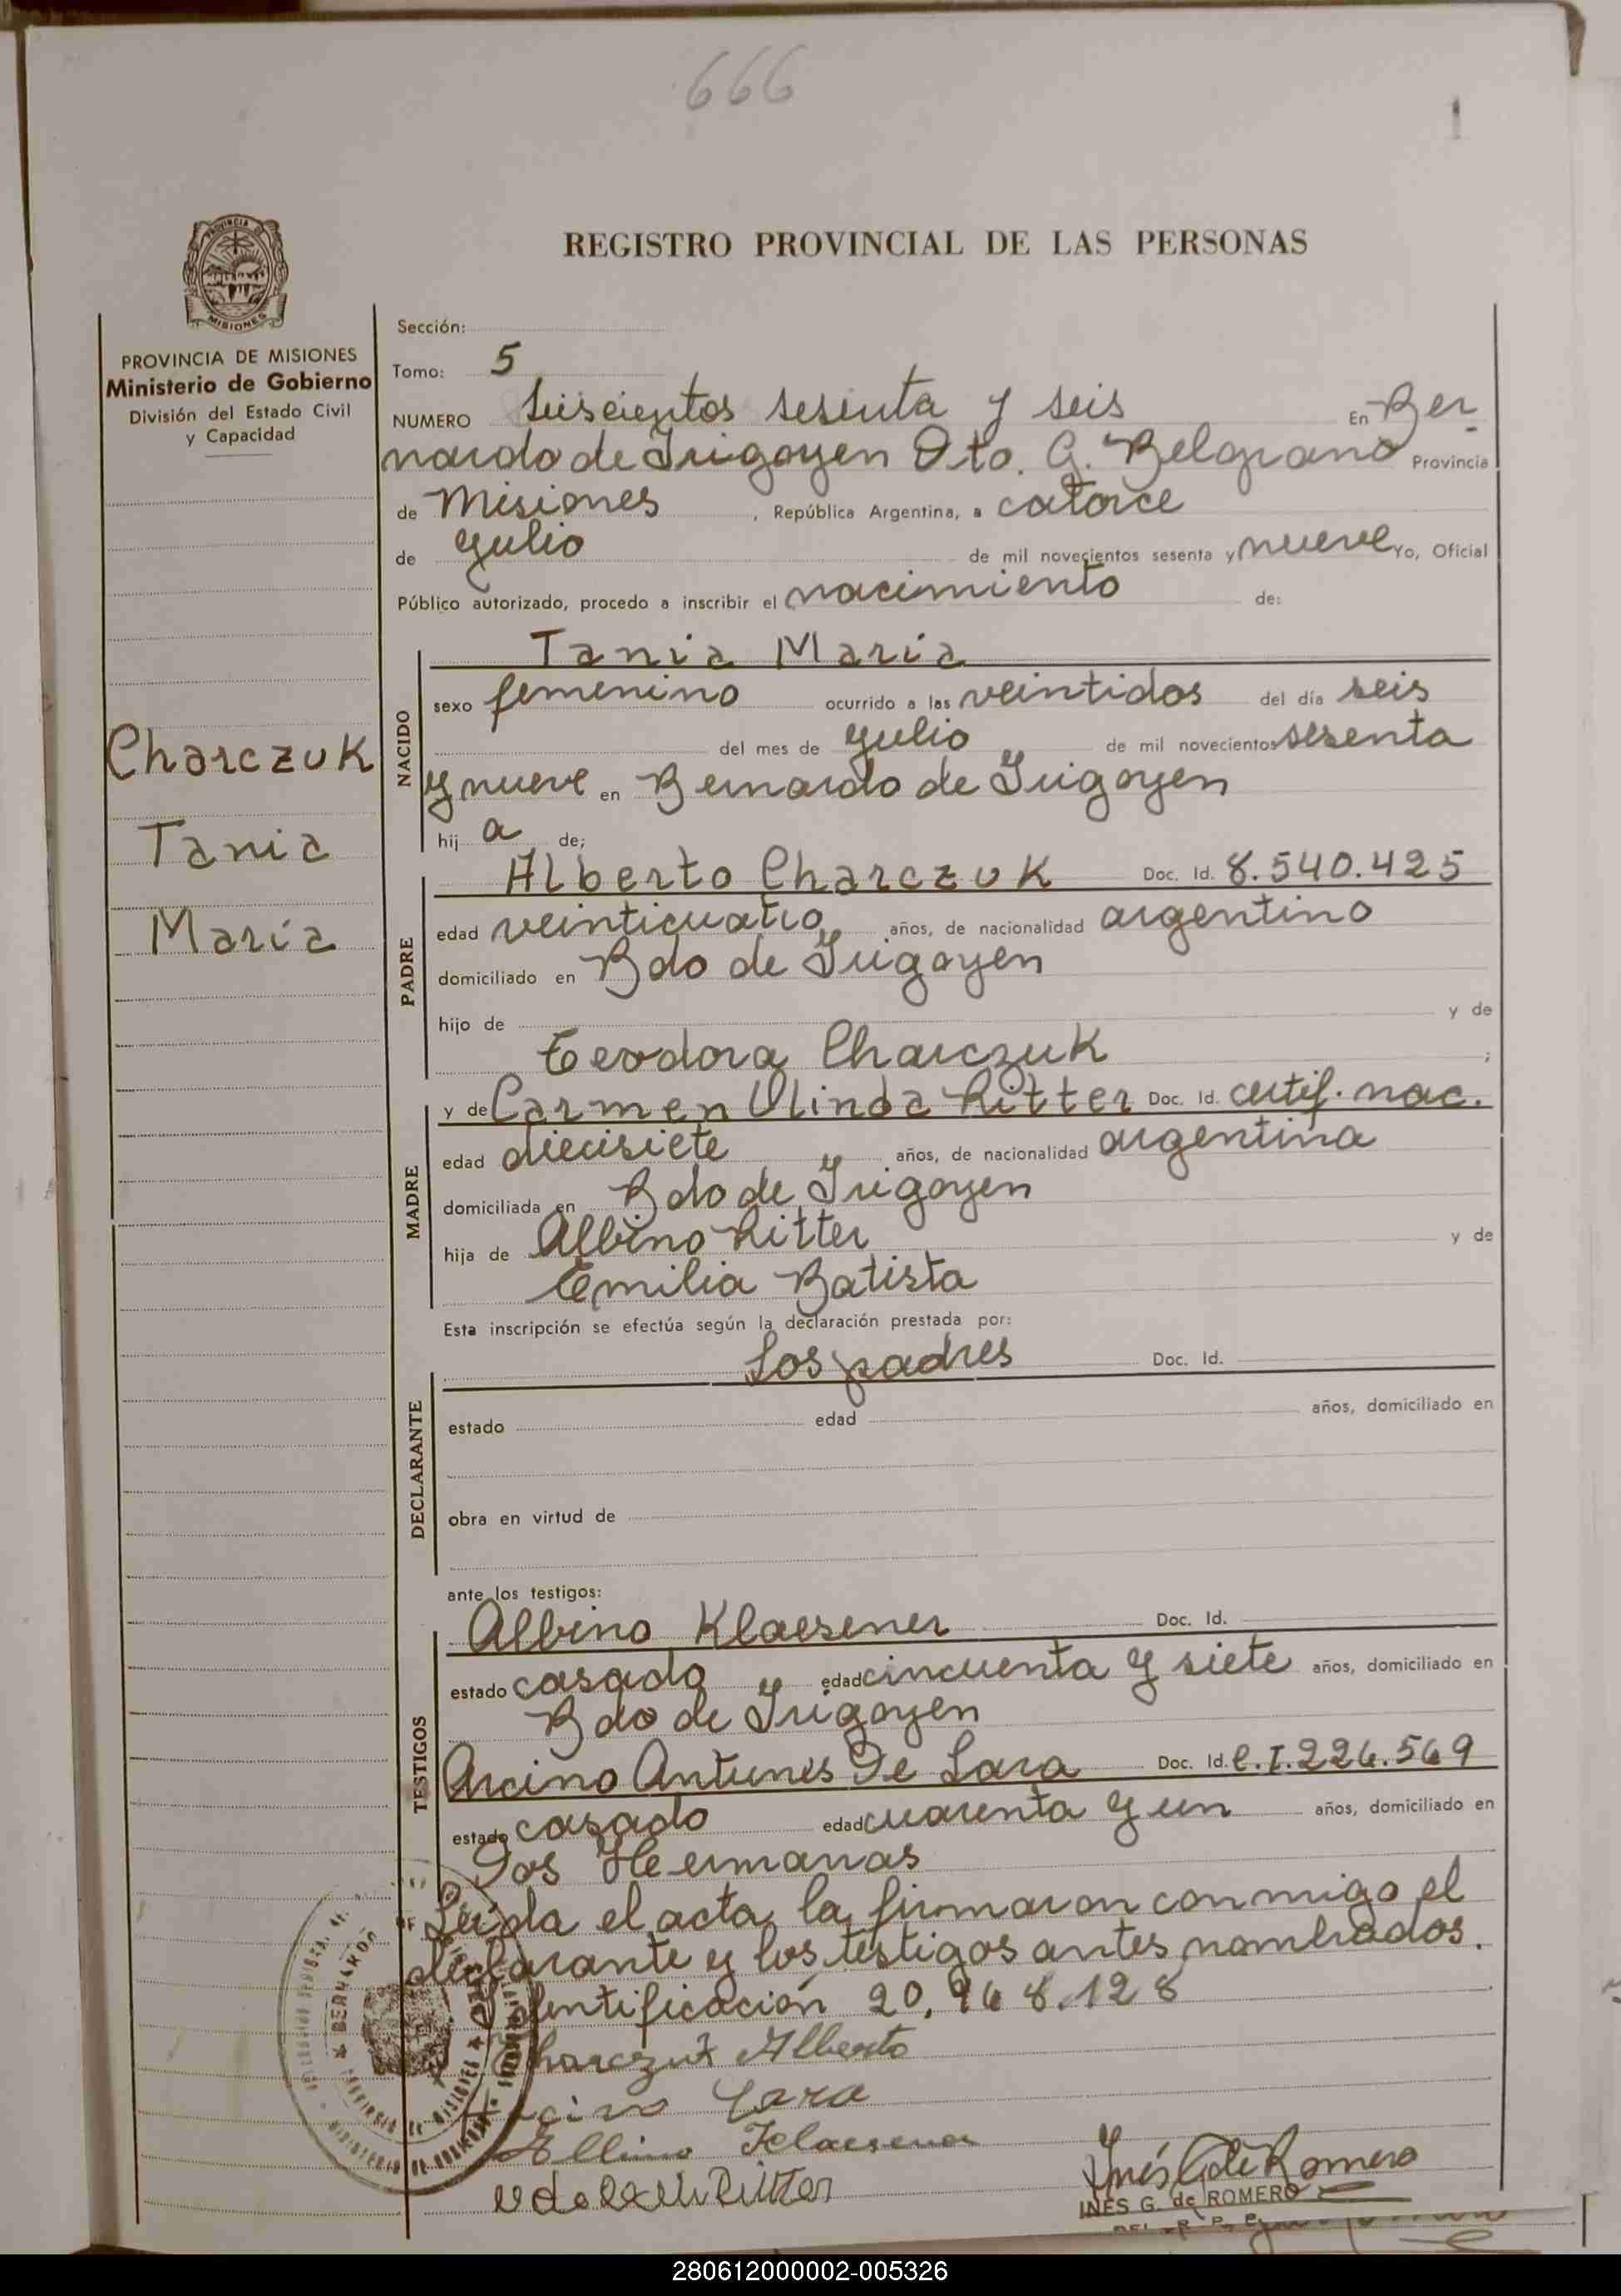 666
1
REGISTRO PROVINCIAL DE LAS PERSONAS
PROVINCIA DE MISIONES
Ministerio de Gobierno
División del Estado Civil
y Capacidad
Charczuk
Tania
María
Sección:
Tomo: 5
NUMERO Seiscientos sesenta y seis En Ber-
nardo de Irigoyen Dto. G. Belgrano Provincia
de Misiones, República Argentina, a catorce
de Julio de mil novecientos sesenta y nueve Yo, Oficial
Público autorizado, procedo a inscribir el nacimiento de:
NACIDO
Tania Maria
sexo femenino ocurrido a las veintidos del día seis
del mes de Julio de mil novecientos sesenta
y nueve en Bernardo de Irigoyen
hij a de;
PADRE
Alberto Charczuk Doc. Id. 8.540.425
edad veinticuatro años, de nacionalidad argentino
domiciliado en Bdo de Irigoyen
hijo de y de
Teodora Charczuk ;
MADRE
y de Carmen Olinda Ritter Doc. Id. certif. nac.
edad diecisiete años, de nacionalidad argentina
domiciliada en Bdo de Irigoyen
hija de Albino Ritter y de
Emilia Batista
Esta inscripción se efectúa según la declaración prestada por:
DECLARANTE
Los padres Doc. Id.
estado edad años, domiciliado en
obra en virtud de
ante los testigos:
TESTIGOS
Albino Klaesener Doc. Id.
estado casado edad cincuenta y siete años, domiciliado en
Bdo de Irigoyen
Arcino Antunes De Lara Doc. Id. C.I. 224.569
estado casado edad cuarenta y un años, domiciliado en
Dos Hermanas
Leída el acta, la firmaron conmigo el
declarante y los testigos antes nombrados.
Identificación 20.968.128
Charczuk Alberto
Arcino Lara
Albino Klaesener
Ritter
Inés G de Romero
INÉS G. de ROMERO
280612000002-005326